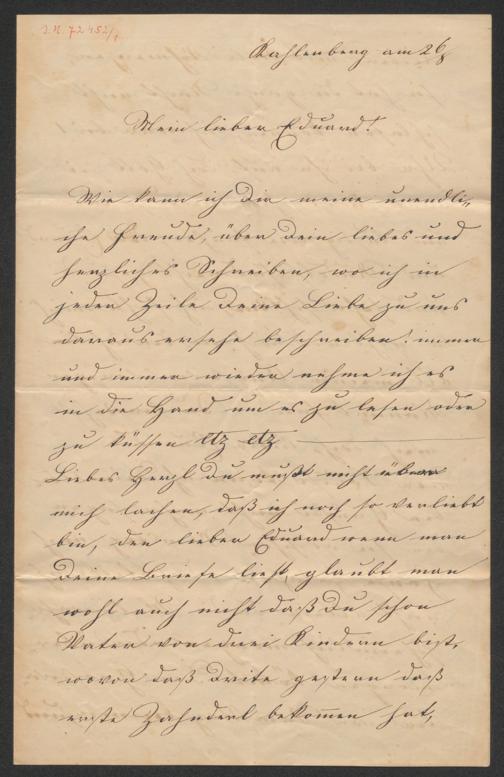 J.N. 72452/1
Kahlenberg am 26/8
Mein lieber Eduard!
Wie kann ich Dir meine unendli„
che Freude, über Dein liebes und
herzliches Schreiben, wo ich in
jeder Zeile Deine Liebe zu uns
daraus ersehe beschreiben! immer
und immer wieder nehme ich es
in die Hand um es zu lesen oder
zu küssen etz etz
Liebes Herzl Du mußt nicht über
mich lachen, daß ich noch so verliebt
bin, den lieber Eduard wenn man
Deine Briefe ließt, glaubt man
wohl auch nicht daß Du schon
Vater von drei Kindern bist,
wovon daß Drite gestern daß
erste Zahnderl bekomen hat,